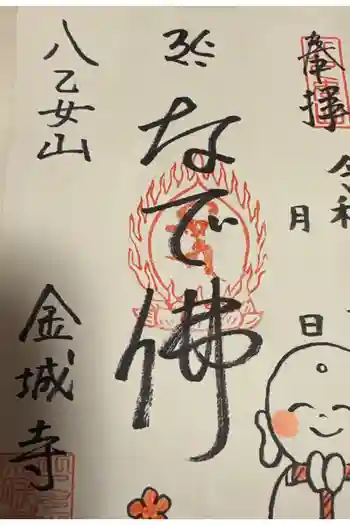 奉拝
令和
月
日
なで佛
八乙女山
金城寺